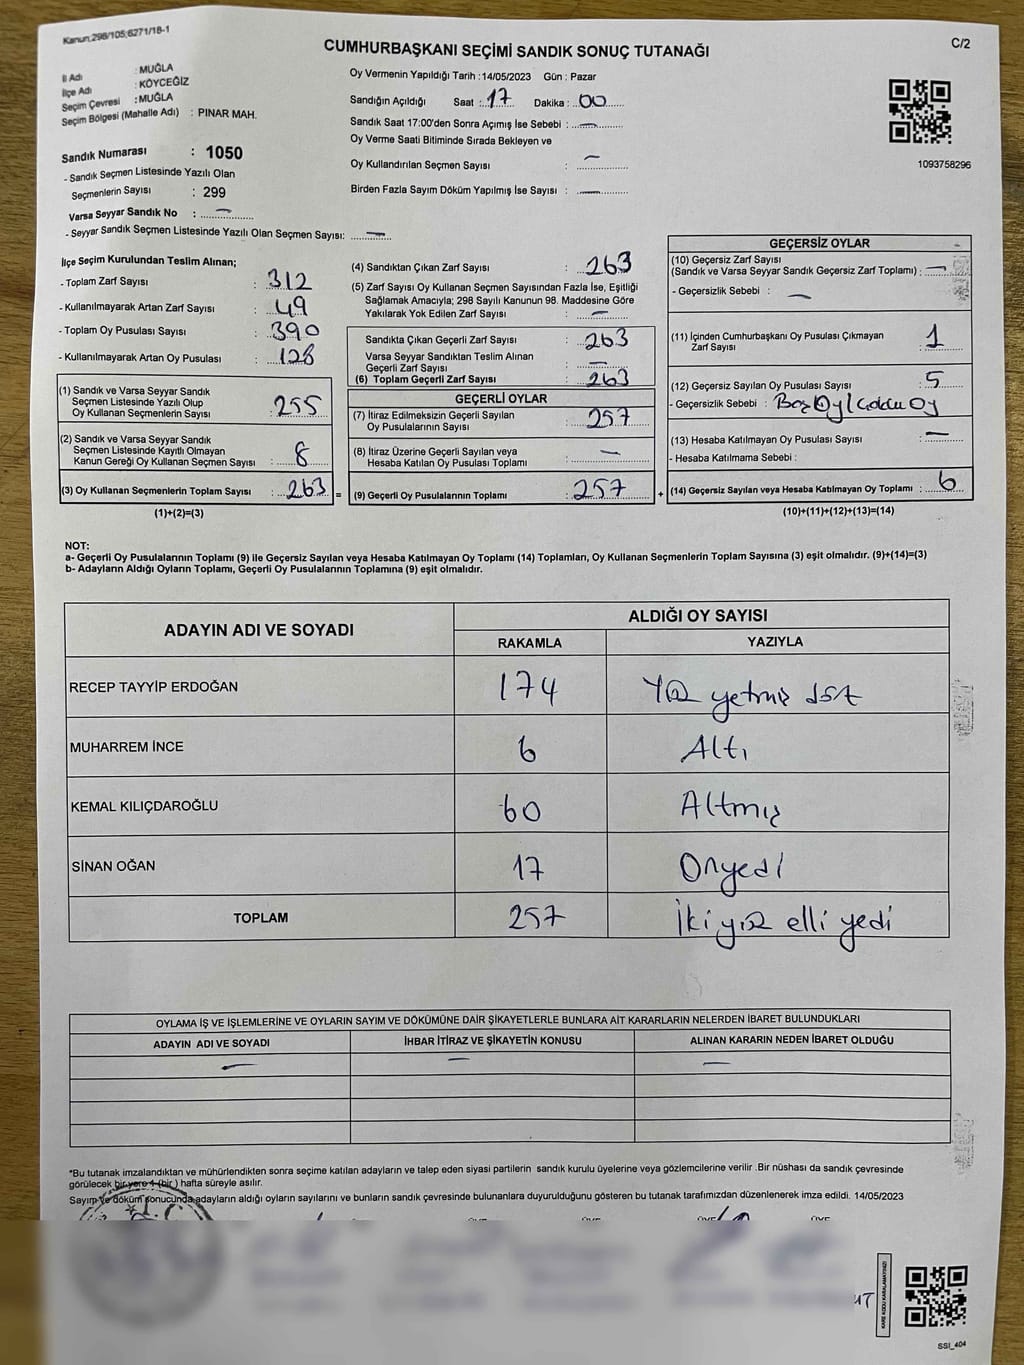 Kanun;298/105;6271/18-1
C/2
CUMHURBAŞKANI SEÇİMİ SANDIK SONUÇ TUTANAĞI
İl Adı : MUĞLA
İlçe Adı : KÖYCEĞİZ
Seçim Çevresi : MUĞLA
Seçim Bölgesi (Mahalle Adı) : PINAR MAH.
Sandık Numarası : 1050
- Sandık Seçmen Listesinde Yazılı Olan
Seçmenlerin Sayısı : 299
Varsa Seyyar Sandık No : —
- Seyyar Sandık Seçmen Listesinde Yazılı Olan Seçmen Sayısı: —
Oy Vermenin Yapıldığı Tarih :14/05/2023 Gün : Pazar
Sandığın Açıldığı Saat : 17 Dakika : 00
Sandık Saat 17:00'den Sonra Açımış İse Sebebi : —
Oy Verme Saati Bitiminde Sırada Bekleyen ve
Oy Kullandırılan Seçmen Sayısı : —
Birden Fazla Sayım Döküm Yapılmış İse Sayısı : —
1093758296
İlçe Seçim Kurulundan Teslim Alınan;
- Toplam Zarf Sayısı : 312
- Kullanılmayarak Artan Zarf Sayısı : 49
- Toplam Oy Pusulası Sayısı : 390
- Kullanılmayarak Artan Oy Pusulası : 128
(1) Sandık ve Varsa Seyyar Sandık
Seçmen Listesinde Yazılı Olup
Oy Kullanan Seçmenlerin Sayısı : 255
(2) Sandık ve Varsa Seyyar Sandık
Seçmen Listesinde Kayıtlı Olmayan
Kanun Gereği Oy Kullanan Seçmen Sayısı : 8
(3) Oy Kullanan Seçmenlerin Toplam Sayısı : 263 =
(1)+(2)=(3)
(4) Sandıktan Çıkan Zarf Sayısı : 263
(5) Zarf Sayısı Oy Kullanan Seçmen Sayısından Fazla İse, Eşitliği
Sağlamak Amacıyla; 298 Sayılı Kanunun 98. Maddesine Göre
Yakılarak Yok Edilen Zarf Sayısı : —
Sandıkta Çıkan Geçerli Zarf Sayısı : 263
Varsa Seyyar Sandıktan Teslim Alınan
Geçerli Zarf Sayısı : —
(6) Toplam Geçerli Zarf Sayısı : 263
GEÇERLİ OYLAR
(7) İtiraz Edilmeksizin Geçerli Sayılan
Oy Pusulalarının Sayısı : 257
(8) İtiraz Üzerine Geçerli Sayılan veya
Hesaba Katılan Oy Pusulası Toplamı : —
(9) Geçerli Oy Pusulalarının Toplamı : 257 +
GEÇERSİZ OYLAR
(10) Geçersiz Zarf Sayısı
(Sandık ve Varsa Seyyar Sandık Geçersiz Zarf Toplamı) : —
- Geçersizlik Sebebi : —
(11) İçinden Cumhurbaşkanı Oy Pusulası Çıkmayan
Zarf Sayısı : 1
(12) Geçersiz Sayılan Oy Pusulası Sayısı : 5
- Geçersizlik Sebebi : Boş Oy
(13) Hesaba Katılmayan Oy Pusulası Sayısı : —
- Hesaba Katılmama Sebebi :
(14) Geçersiz Sayılan veya Hesaba Katılmayan Oy Toplamı : 6
(10)+(11)+(12)+(13)=(14)
NOT:
a- Geçerli Oy Pusulalarının Toplamı (9) ile Geçersiz Sayılan veya Hesaba Katılmayan Oy Toplamı (14) Toplamları, Oy Kullanan Seçmenlerin Toplam Sayısına (3) eşit olmalıdır. (9)+(14)=(3)
b- Adayların Aldığı Oyların Toplamı, Geçerli Oy Pusulalarının Toplamına (9) eşit olmalıdır.
ADAYIN ADI VE SOYADI
ALDIĞI OY SAYISI
RAKAMLA YAZIYLA
RECEP TAYYİP ERDOĞAN 174 Yüz yetmiş dört
MUHARREM İNCE 6 Altı
KEMAL KILIÇDAROĞLU 60 Altmış
SİNAN OĞAN 17 Onyedi
TOPLAM 257 İki yüz elli yedi
OYLAMA İŞ VE İŞLEMLERİNE VE OYLARIN SAYIM VE DÖKÜMÜNE DAİR ŞİKAYETLERLE BUNLARA AİT KARARLARIN NELERDEN İBARET BULUNDUKLARI
ADAYIN ADI VE SOYADI İHBAR İTİRAZ VE ŞİKAYETİN KONUSU ALINAN KARARIN NEDEN İBARET OLDUĞU
— — —
*Bu tutanak imzalandıktan ve mühürlendikten sonra seçime katılan adayların ve talep eden siyasi partilerin sandık kurulu üyelerine veya gözlemcilerine verilir .Bir nüshası da sandık çevresinde
görülecek bir yere 1 (bir ) hafta süreyle asılır.
Sayım ve döküm sonucunda adayların aldığı oyların sayılarını ve bunların sandık çevresinde bulunanlara duyurulduğunu gösteren bu tutanak tarafımızdan düzenlenerek imza edildi. 14/05/2023
KARE KODU KARALAMAYINIZ!
SSI_404